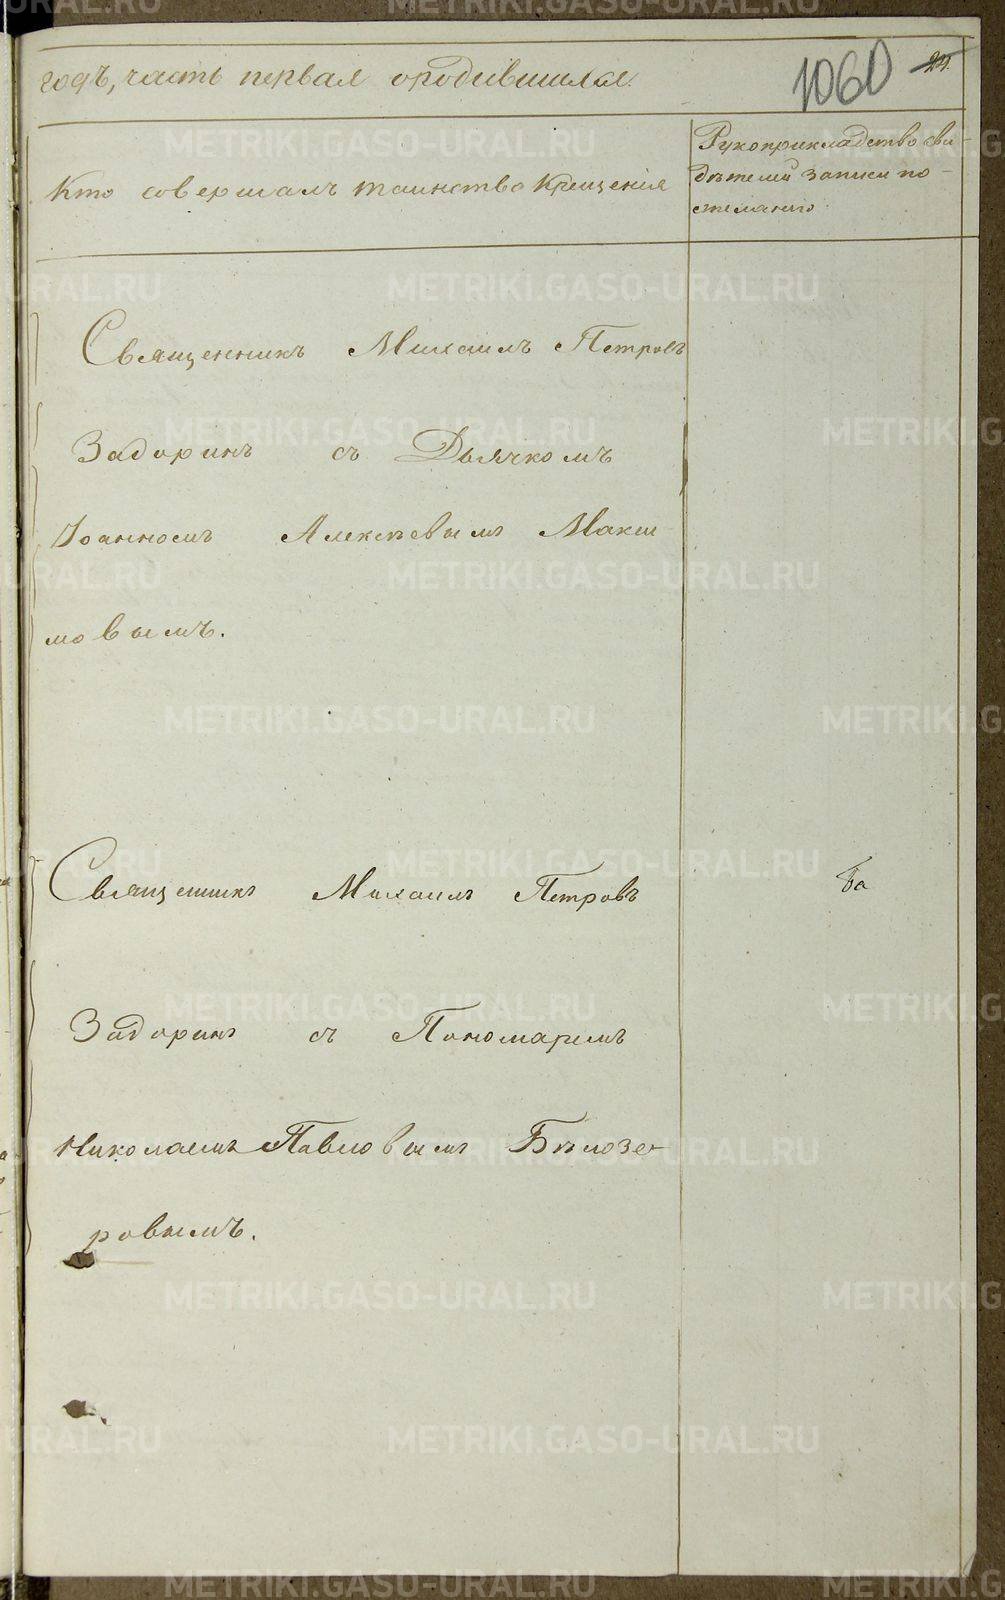 годъ, часть первая ородившихся
1060
24.
Кто совершалъ таинство крещенія
Рукоприкладство сви-
дѣтелей записи по-
желанію.
Священникъ Михаилъ Петровъ
Задоринъ съ Дьячкомъ
Іоанномъ Алексѣевымъ Макси
мовымъ.
Священникъ Михаилъ Петровъ
Задоринъ съ Пономаремъ
Николаемъ Павловымъ Бѣлозе-
ровымъ.
METRIKI.GASO-URAL.RU